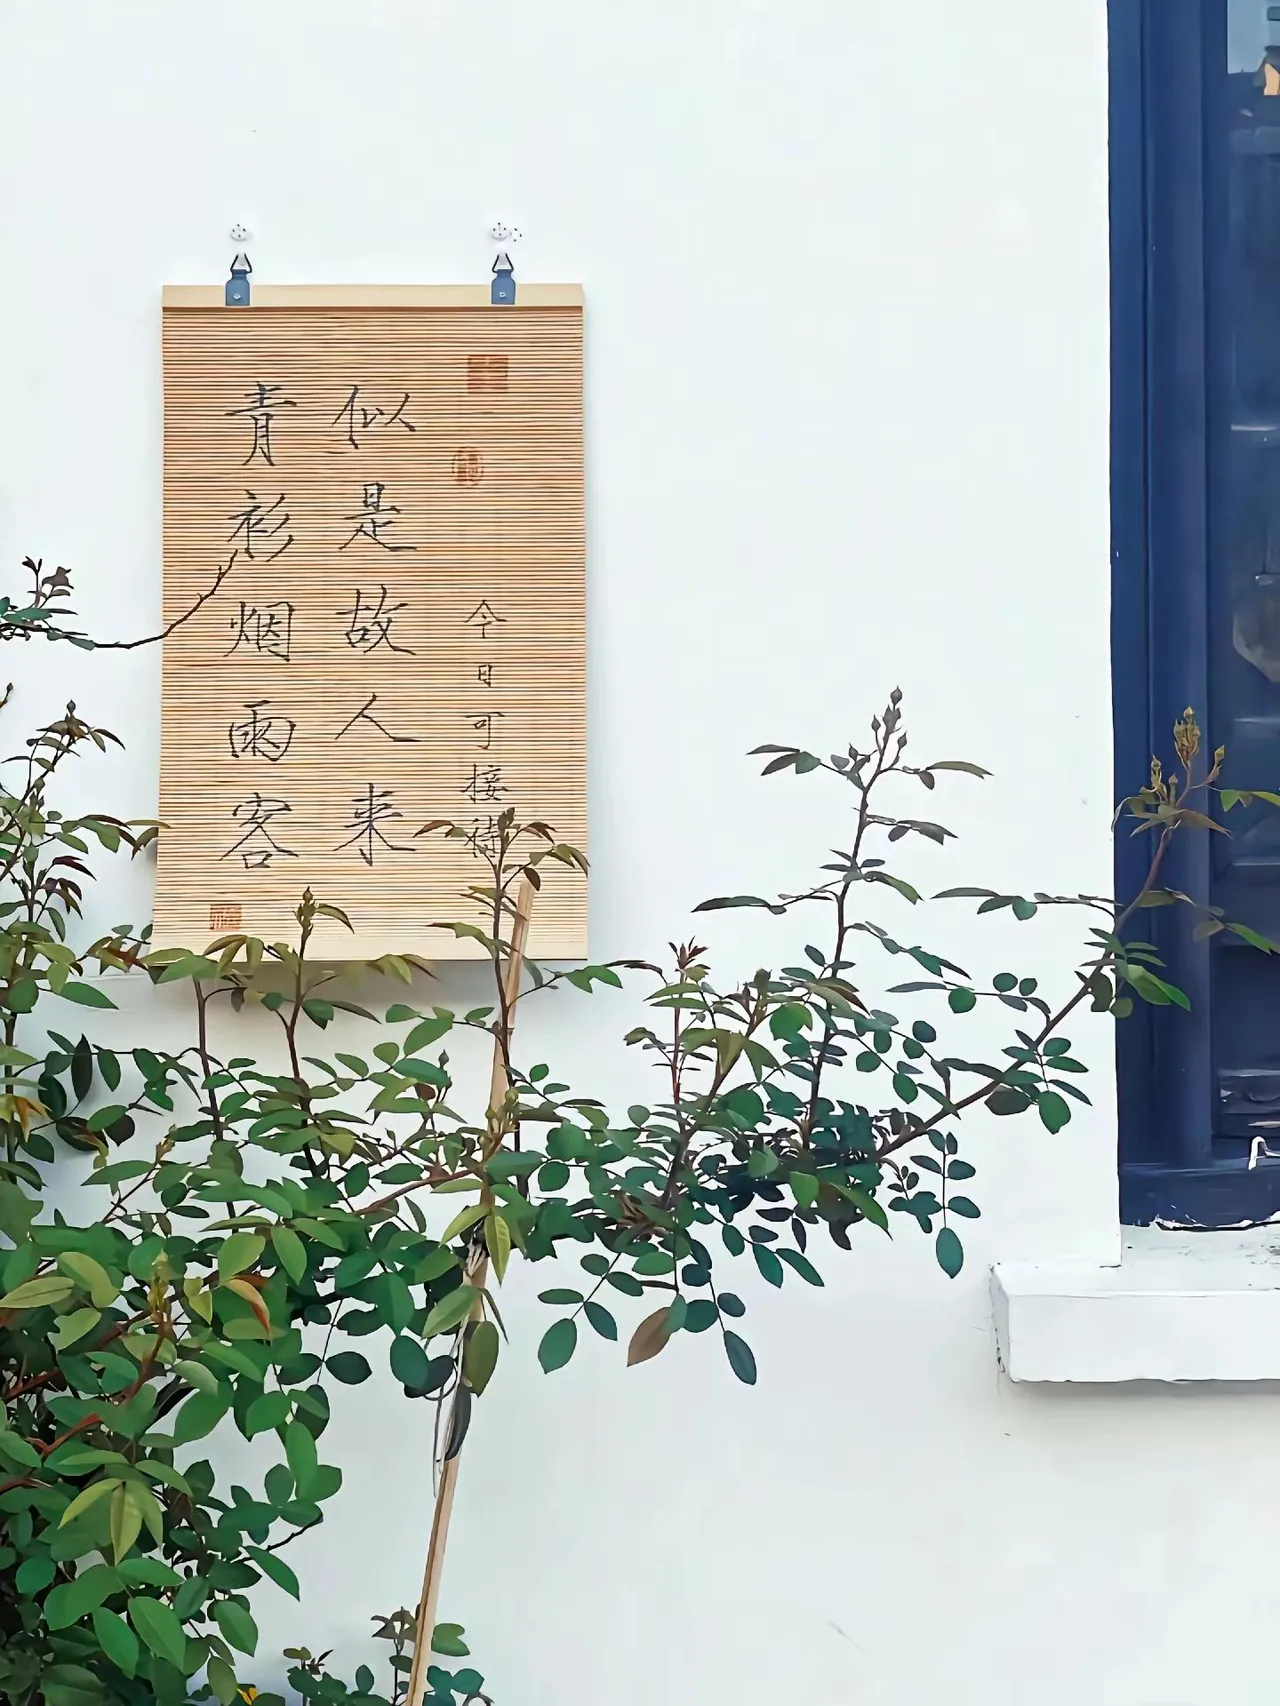 今日可接待
似是故人来
青衫烟雨客